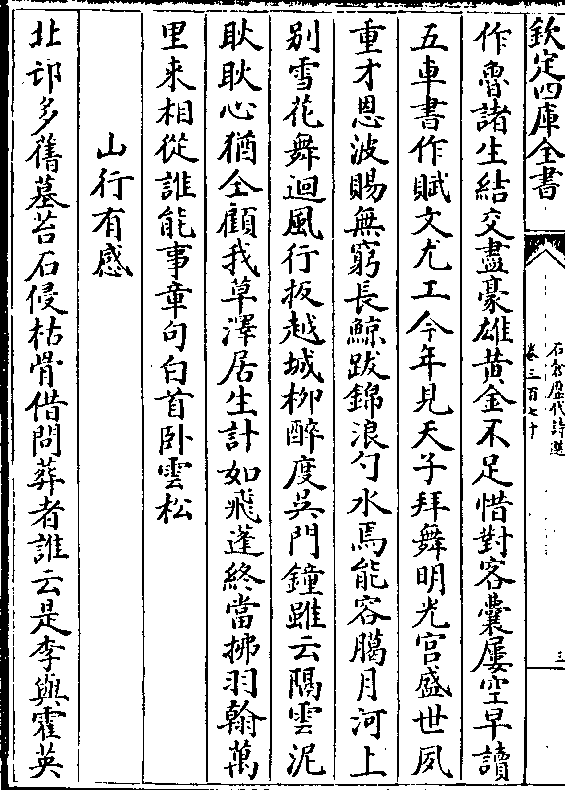 欽定四庫全書
石倉歷代詩選
卷三百七十
三
作魯諸生結交盡豪雄黃金不足惜對客囊屢空早讀
五車書作賦文尤工今年見天子拜舞明光宮盛世夙
重才恩波賜無窮長鯨跋錦浪勺水焉能容臈月河上
别雪花舞迴風行扳越城栁醉度吳門鐘雖云隔雲泥
耿耿心猶全顧我草澤居生計如飛蓬終當拂羽翰萬
里来相從誰能事章句白首卧雲松
山行有感
北邙多舊墓苔石侵枯骨借問葬者誰云是李與霍英